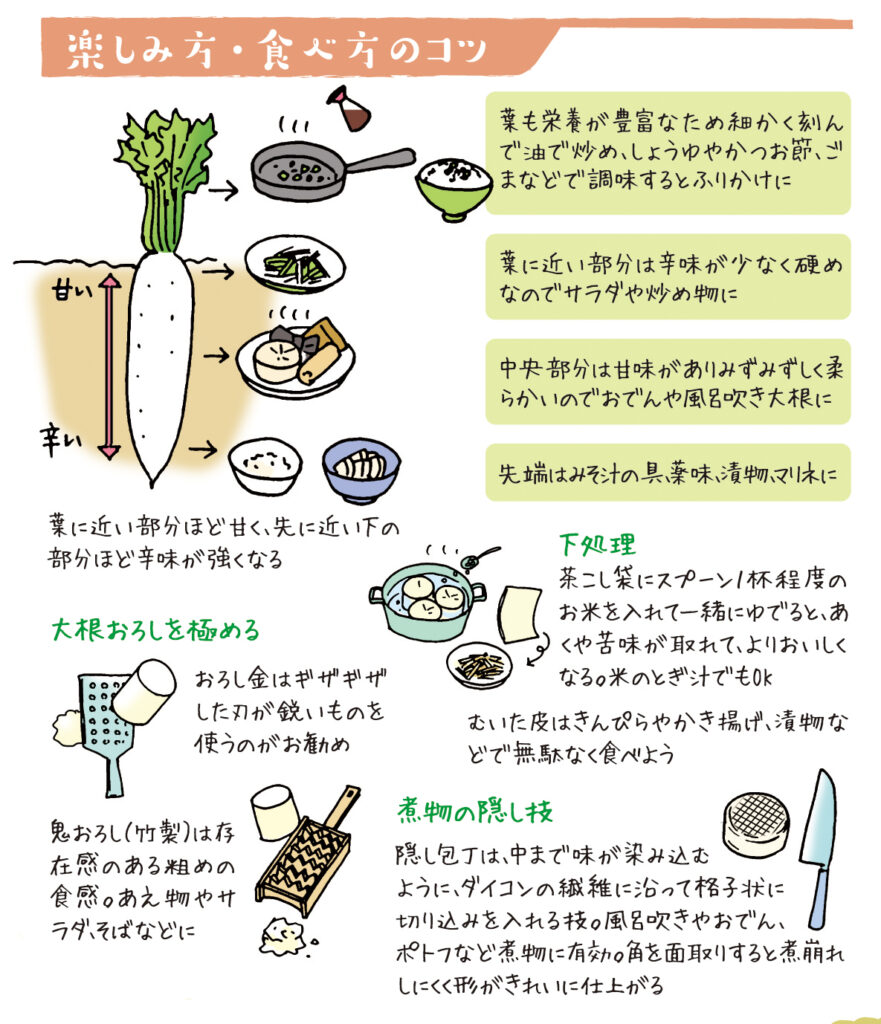 楽しみ方・食べ方のコツ
葉も栄養が豊富なため細かく刻ん
で油で炒め、しょうゆやかつお節、ご
まなどで調味するとふりかけに
葉に近い部分は辛味が少なく硬め
なのでサラダや炒め物に
中央部分は甘味がありみずみずしく柔
らかいのでおでんや風呂吹き大根に
先端はみそ汁の具、薬味、漬物、マリネに
甘い
辛い
葉に近い部分ほど甘く、先に近い下の
部分ほど辛味が強くなる
大根おろしを極める
おろし金はギザギザ
した刃が鋭いものを
使うのがお勧め
鬼おろし(竹製)は存
在感のある粗めの
食感。あえ物やサ
ラダ、そばなどに
下処理
茶こし袋にスプーン1杯程度の
お米を入れて一緒にゆでると、あ
くや苦味が取れて、よりおいしく
なる。米のとぎ汁でもOK
むいた皮はきんぴらやかき揚げ、漬物な
どで無駄なく食べよう
煮物の隠し技
隠し包丁は、中まで味が染み込む
ように、ダイコンの繊維に沿って格子状に
切り込みを入れる技。風呂吹きやおでん、
ポトフなど煮物に有効。角を面取りすると煮崩れ
しにくく形がきれいに仕上がる